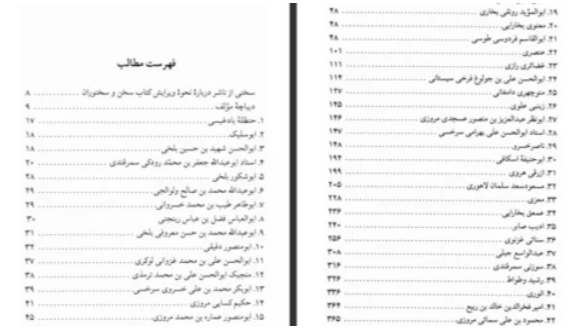 فهرست مطالب
سخنی از ناشر دربارۀ نحوۀ ویرایش کتاب سخن و سخنوران ۸
دیباچۀ مؤلف ۹
۱. حنظلۀ بادغیسی ۱۷
۲. ابوسلیک ۱۸
۳. ابوالحسن شهید بن حسین بلخی ۱۸
۴. استاد ابوعبدالله جعفر بن محمّد رودکی سمرقندی ۲۰
۵. ابوشکور بلخی ۲۸
۶. ابوعبدالله محمد بن صالح ولوالجی ۲۹
۷. ابوطاهر طیب بن محمد خسروانی ۲۹
۸. ابوالعباس فضل بن عباس ربنجنی ۳۰
۹. ابوعبدالله محمد بن حسن معروفی بلخی ۳۱
۱۰. ابومنصور دقیقی ۳۲
۱۱. ابوالحسن علی بن محمد غزوانی لوکری ۳۷
۱۲. منجیک ابوالحسن علی بن محمد ترمذی ۳۸
۱۳. ابوبکر محمد بن علی خسروی سرخسی ۳۹
۱۴. حکیم کسایی مروزی ۴۱
۱۵. ابومنصور عماره بن محمد مروزی ۴۵
۱۹. ابوالمؤید رونقی بخاری ۴۸
۲۰. معنوی بخارایی ۴۸
۲۱. ابوالقاسم فردوسی طوسی ۴۸
۲۲. عنصری ۱۰۱
۲۳. غضائری رازی ۱۱۱
۲۴. ابوالحسن علی بن جولوغ فرخی سیستانی ۱۱۴
۲۵. منوچهری دامغانی ۱۲۷
۲۶. زینبی علوی ۱۴۵
۲۷. ابونظر عبدالعزیز بن منصور عسجدی مروزی ۱۴۶
۲۸. استاد ابوالحسن علی بهرامی سرخسی ۱۴۷
۲۹. ناصرخسرو ۱۴۸
۳۰. ابوحنیفۀ اسکافی ۱۹۴
۳۱. ازرقی هروی ۱۹۹
۳۲. مسعودسعد سلمان لاهوری ۲۰۵
۳۳. معزی ۲۲۸
۳۴. عمعق بخارایی ۲۳۶
۳۵. ادیب صابر ۲۴۰
۳۶. سنائی غزنوی ۲۵۶
۳۷. عبدالواسع جبلی ۳۰۸
۳۸. سوزنی سمرقندی ۳۱۶
۳۹. رشید وطواط ۳۲۶
۴۰. انوری ۳۳۶
۴۱. امیر فخرالدین خالد بن ربیع ۳۶۴
۴۲. محمود بن علی سمائی مروزی ۳۶۵